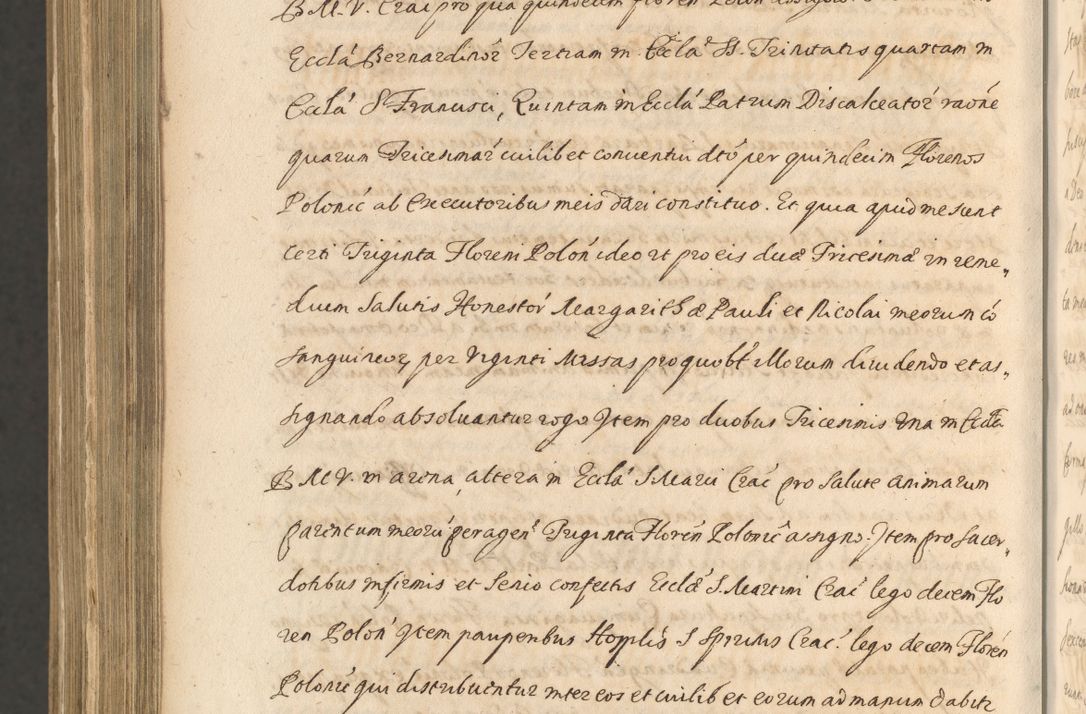 B. M. V. Crac pro qua quindecim floren Polon assigno.
Ecclã Bernardinor̃ Tertiam in Eccla˜ SS. Trinitatis quartam in
Ecclã S Francisci, Quintam in Ecclã Patrum Discalceator̃ raõne
quarum Tricesimar̃ cuilibet conuentui dtõ per quindecim Florenos
Polonic̃ ab Executoribus meis dari constituo. Et quia apud me sunt
certi Triginta Floreni Polon̂ ideo ut pro eis duæ Tricesimæ in reme„
dium Salutis Honestor̃ Margarithæ Pauli et Nicolai meorum cõ
sanguineor, per Viginti Missas pro quobt̃ illorum diuidendo et as„
signando absoluantur rogo Item pro duobus Tricesimis Vna in Eccla
B M V. in arena, altera in Ecclã S Marci Crac̃ pro Salute animarum
parentum meorũ peragen̂ Triginta Floren̂ Polonic̃ assigno. Item pro Sacer„
dotibus infirmis et Senio confectis Ecclæ˜ S. Martini Crac̃ lego decem Flo
ren Polon̂ Item pauperibus Hospĩlis S Spritus Crac̃. lego decem Florén
Polonic̃ qui distribuentur inter eos et cuilibet eorum ad manum dabitr